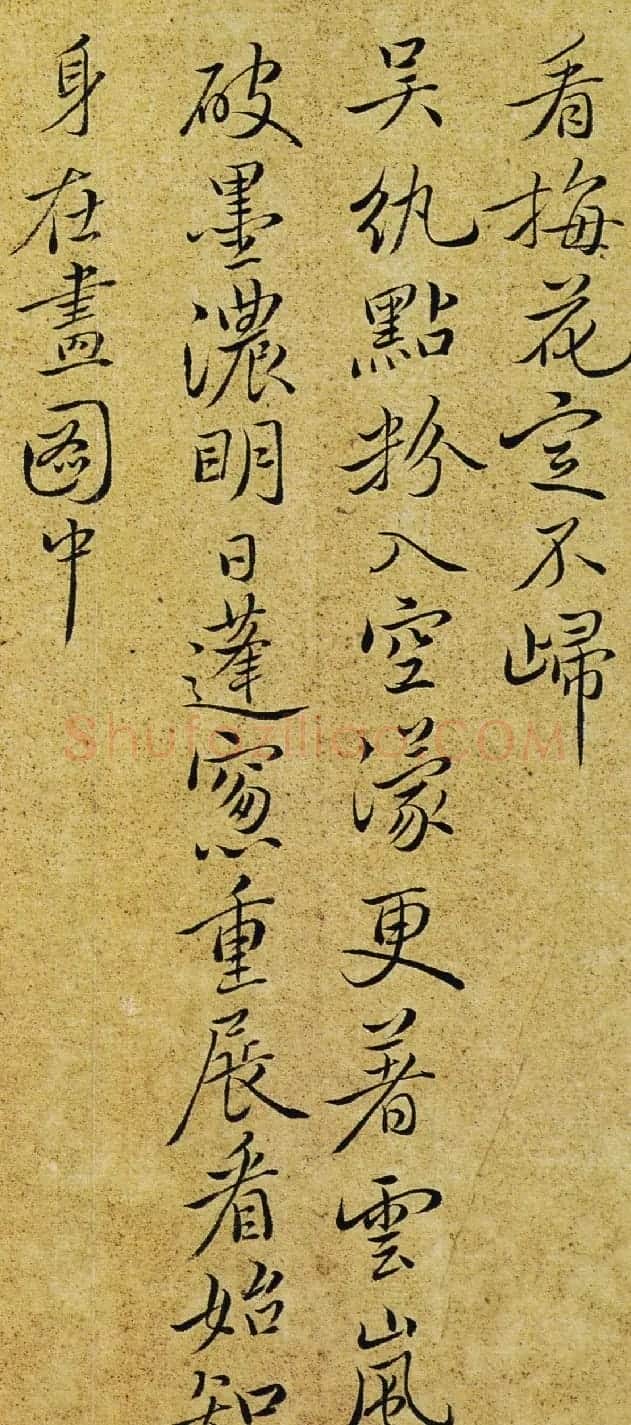 看梅花定不歸
吴紈點粉入空濛更著雲嵐
破墨濃明日蓬窻重展看始知
身在畫圖中
Shufaziliao.COM